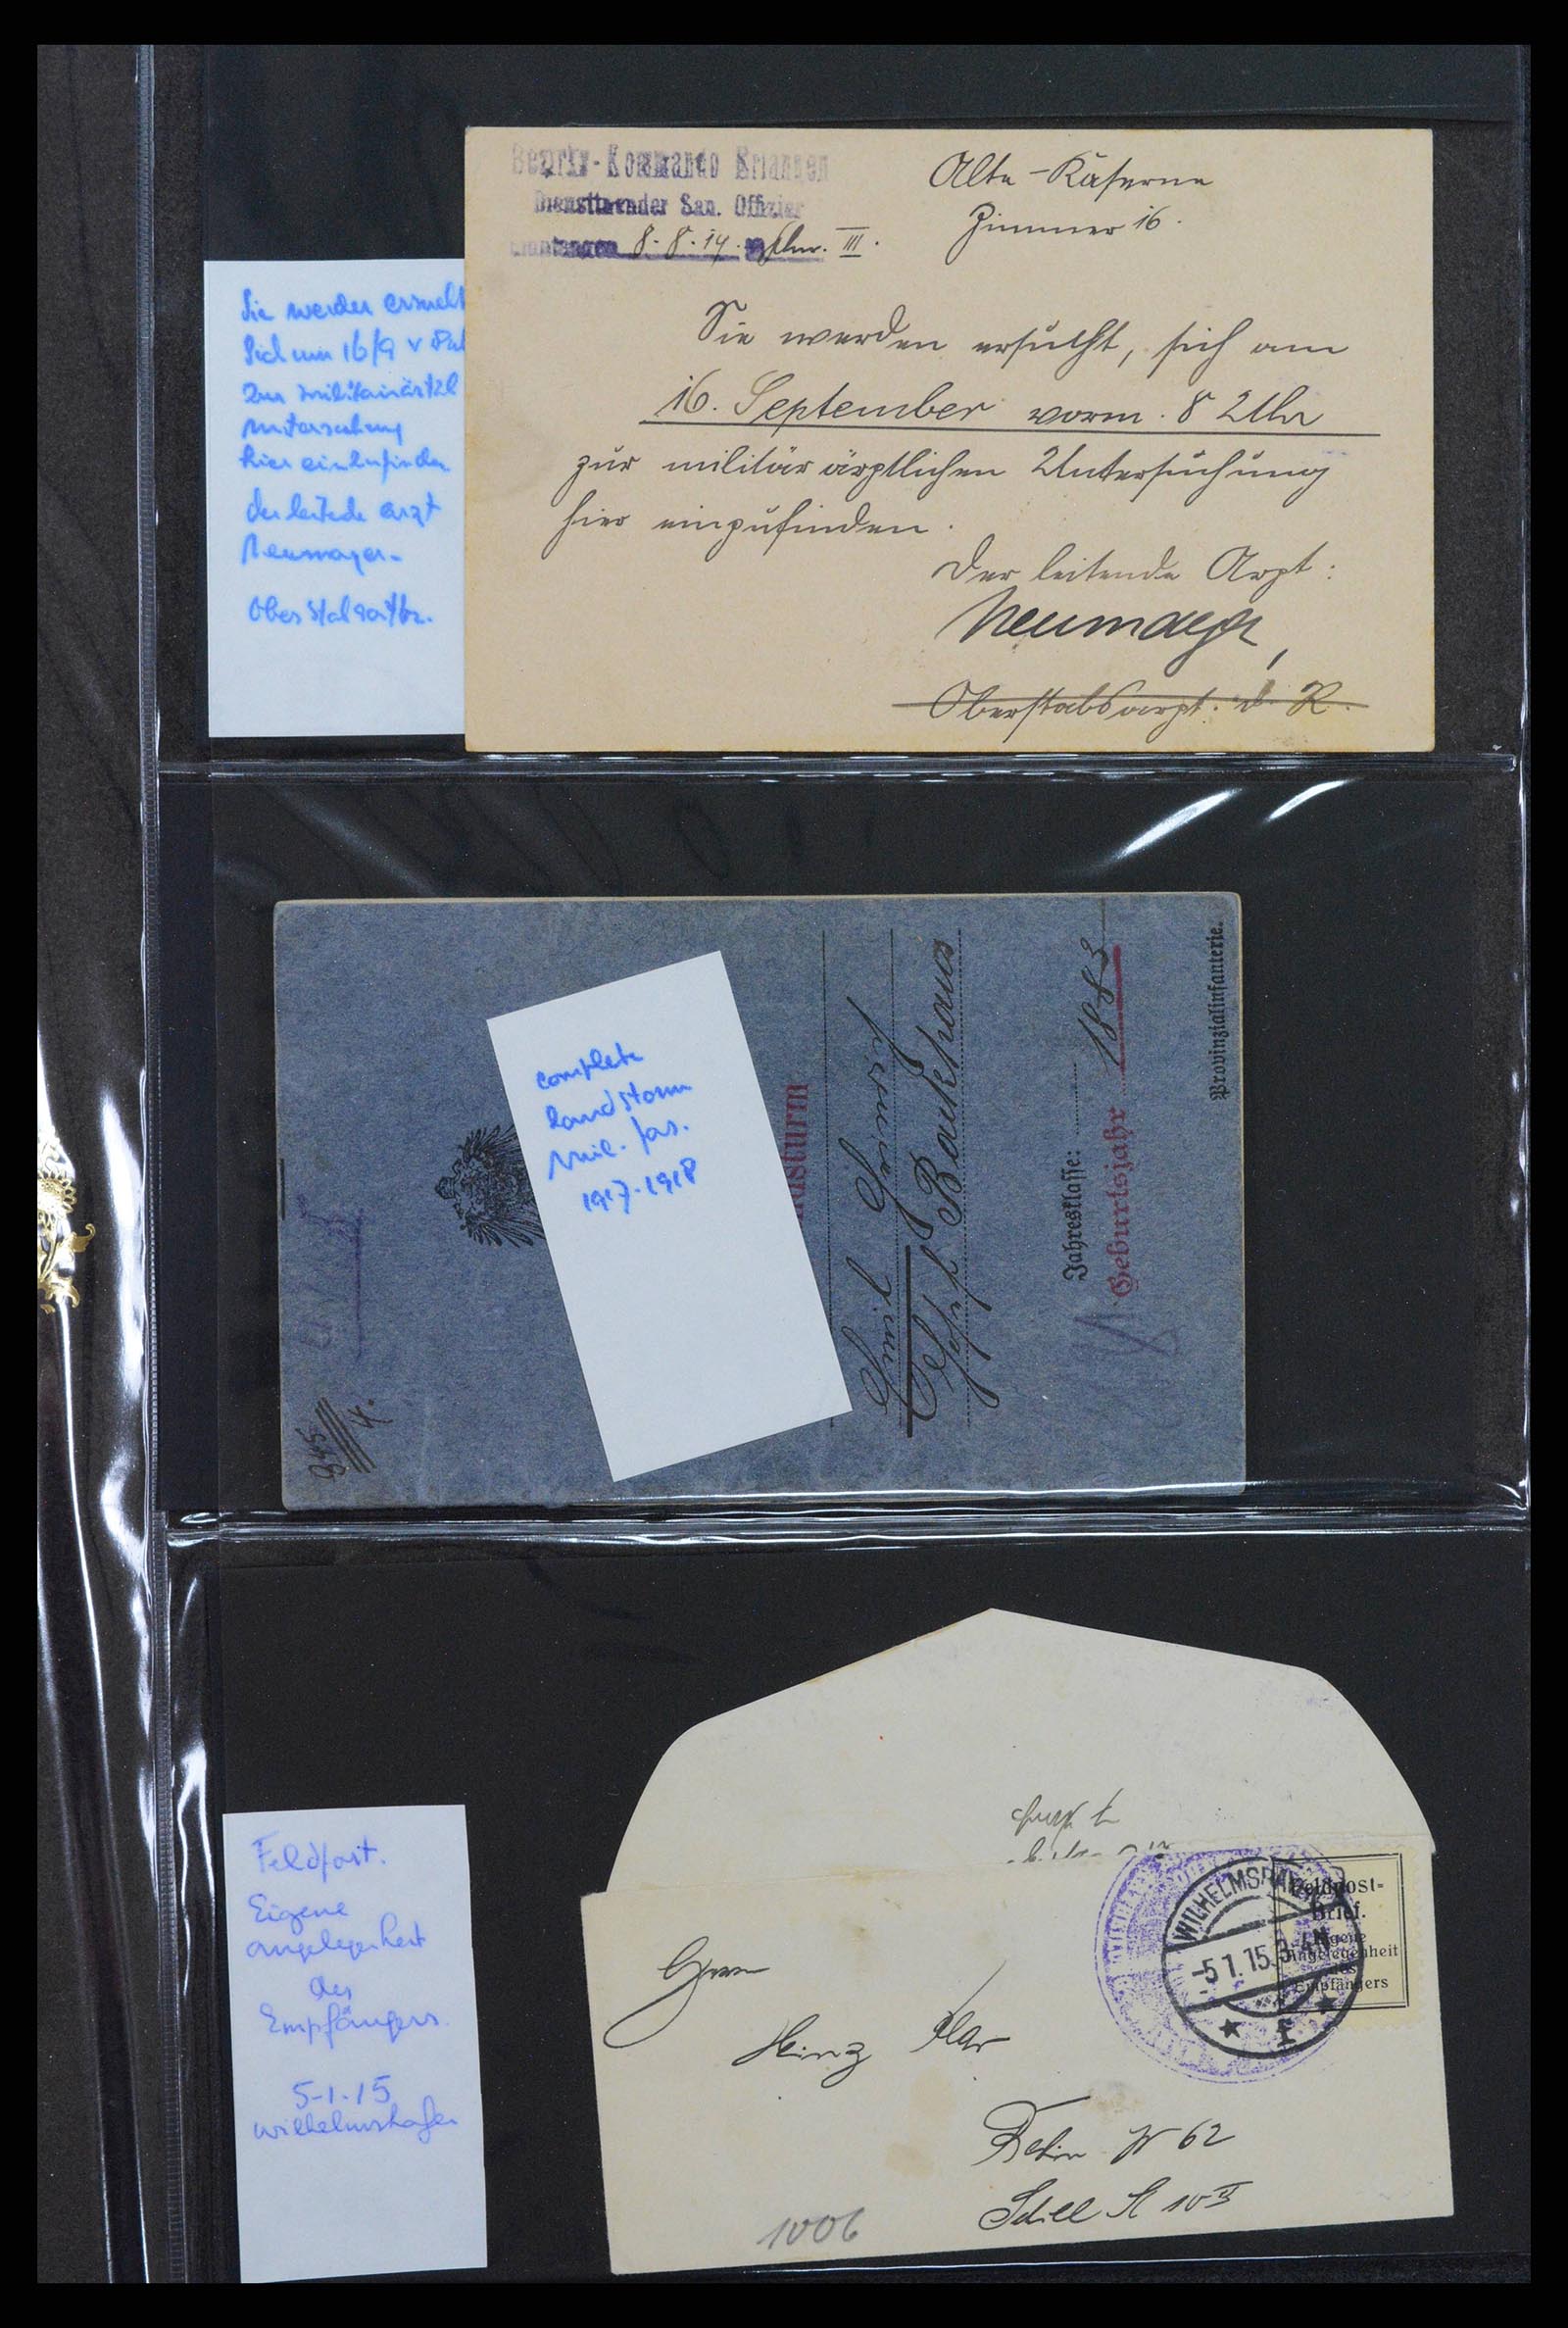 Bezirks-Kommando Erlangen
Diensttuender San. Offizier
8.8.14. III.
Alte Kaserne
Zimmer 16.
Sie werden ersucht, sich am
16. September vorm. 8 Uhr
zur militärärztlichen Untersuchung
hier einzufinden.
Der leitende Arzt:
Neumayer,
Oberstabsarzt. d. R.
Sie werden ersucht
Sich um 16/9 v
zur militairärtzl
untersuchung
hier einzufinden
der leitende arzt
Neumayer.
Ober
complete
Landstorm
Mil. pas.
1917-1918
945
4.
dsturm
Josef Backhaus
Jahresklasse:
Geburtsjahr 1883
Provinzialinfanterie.
Feldpost.
Eigene
angelegenheit
des
Empfängers.
5-1-15
wilhelmshafen
WILHELMSHAVEN
-5 1.15. 3-4N
Feldpost-
Brief.
Eigene
Angelegenheit
des
Empfängers
Herrn
Heinz
Berlin W 62
Schill St 10
1006